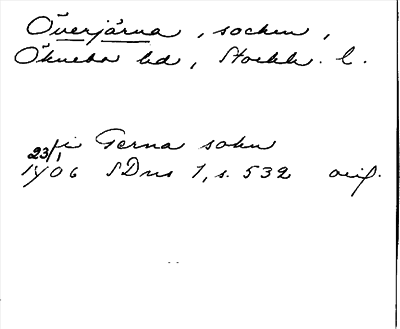 Överjärna, socken,
Öknebo hd, Stockh. l.
j i Gerna sokn
23/1
1406 SDns 1, s. 532 orig.